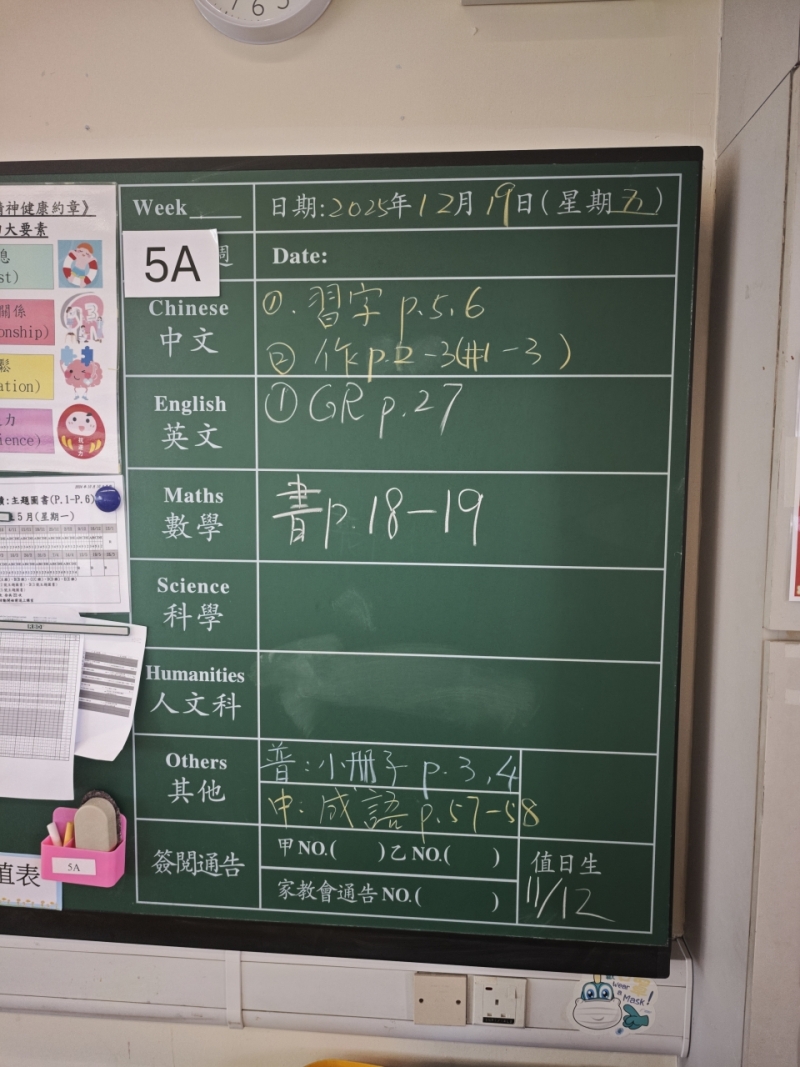 6 5
精神健康約章》
大要素
st)
關係
onship)
鬆
ation)
力
ience)
主題圖書(P.1-P.6)
5月(星期一)
Week____ 日期:2025年12月19日(星期五)
5A 週 Date:
Chinese 中文 ①.習字 p.5,6
② 作p.2-3(#1-3)
English 英文 ① GR p.27
Maths 數學 書p.18-19
Science 科學
Humanities 人文科
Others 其他 普:小冊子 p.3,4
中:成語 p.57-58
簽閱通告 甲NO.( )乙NO.( )
家教會通告NO.( )
值日生
11/12
5A
值表
wear a Mask!